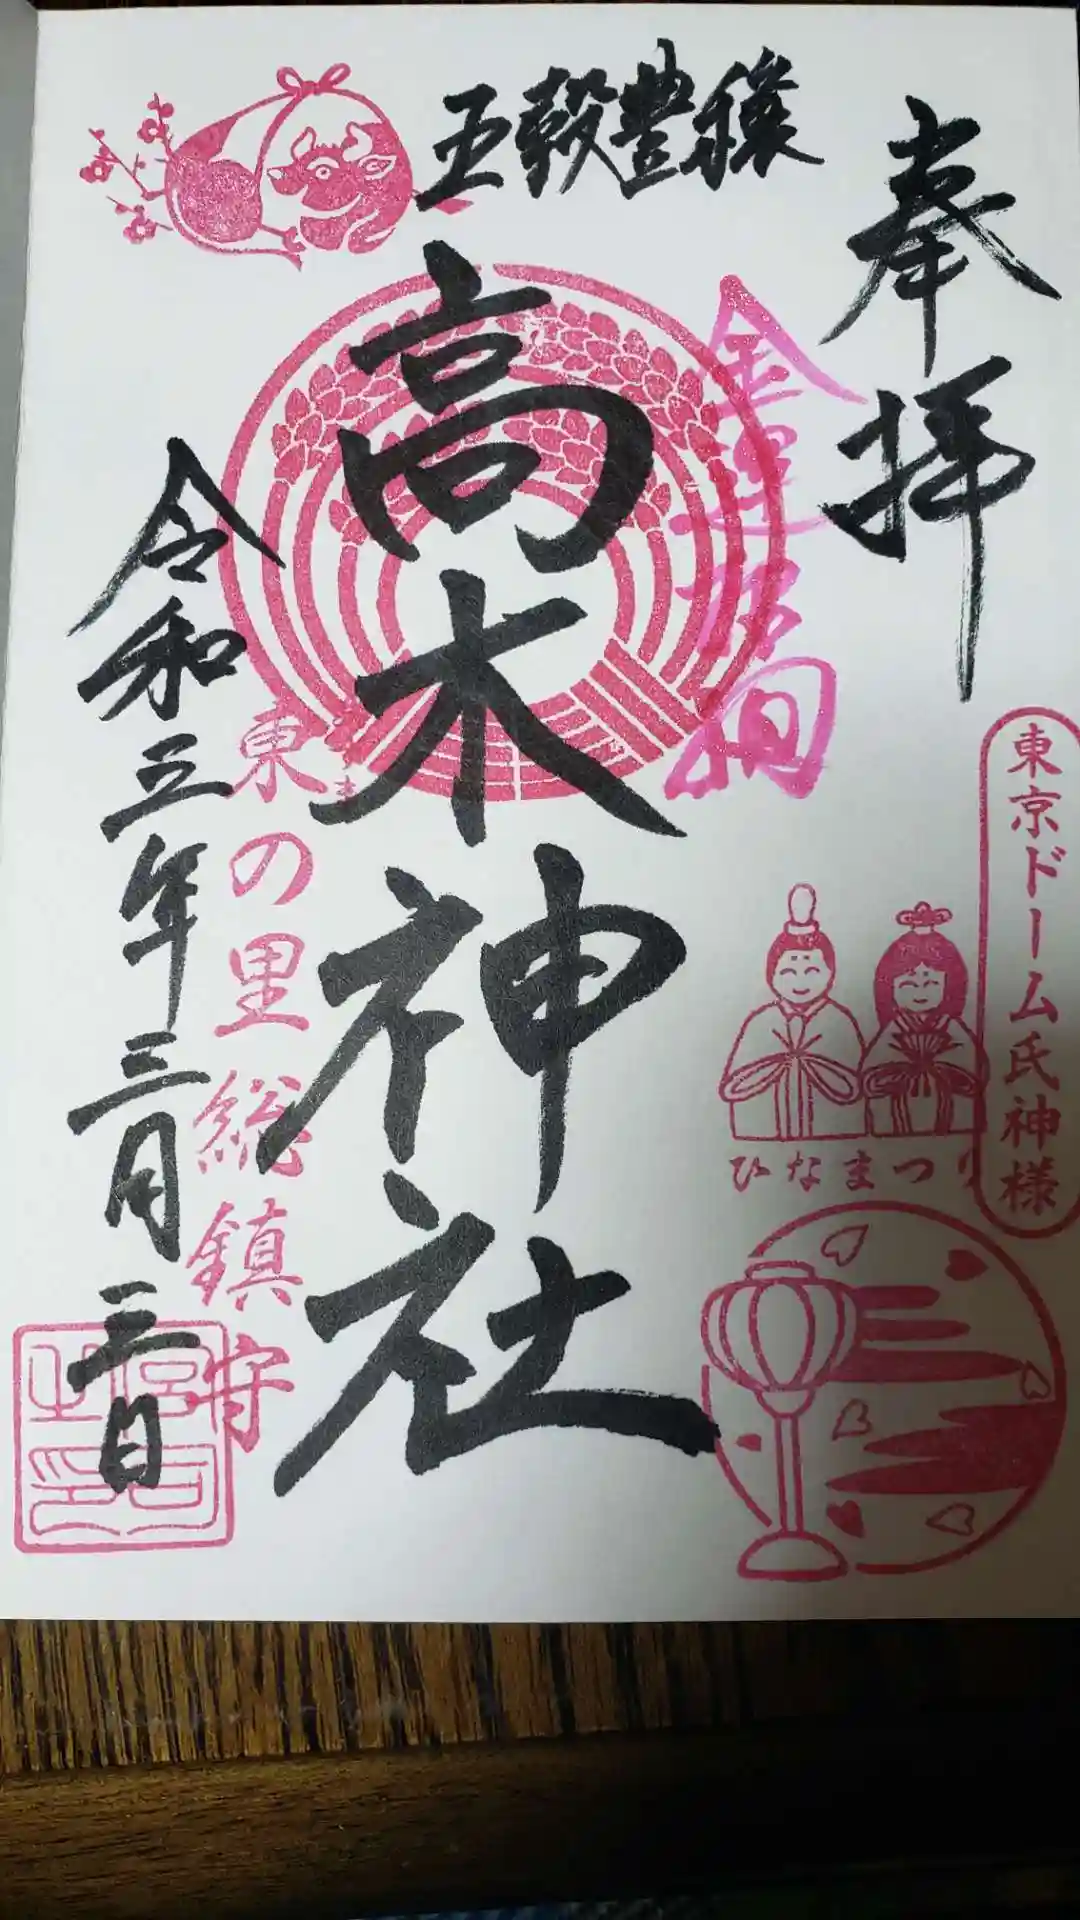 奉拝
東京ドーム氏神様
五穀豊穣
金運招福
高木神社
ひなまつり
東の里総鎮守
あずま
令和三年三月三日